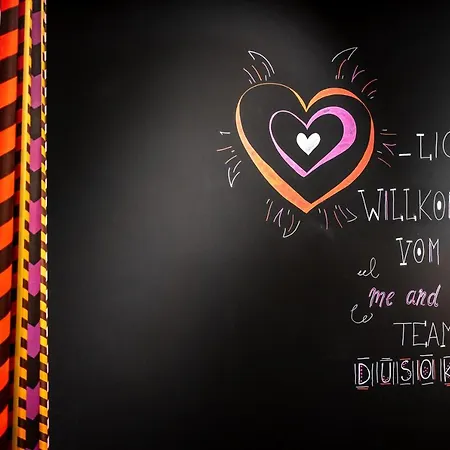 -LIC
WILLKO
VOM
me and
TEAM
DUSO